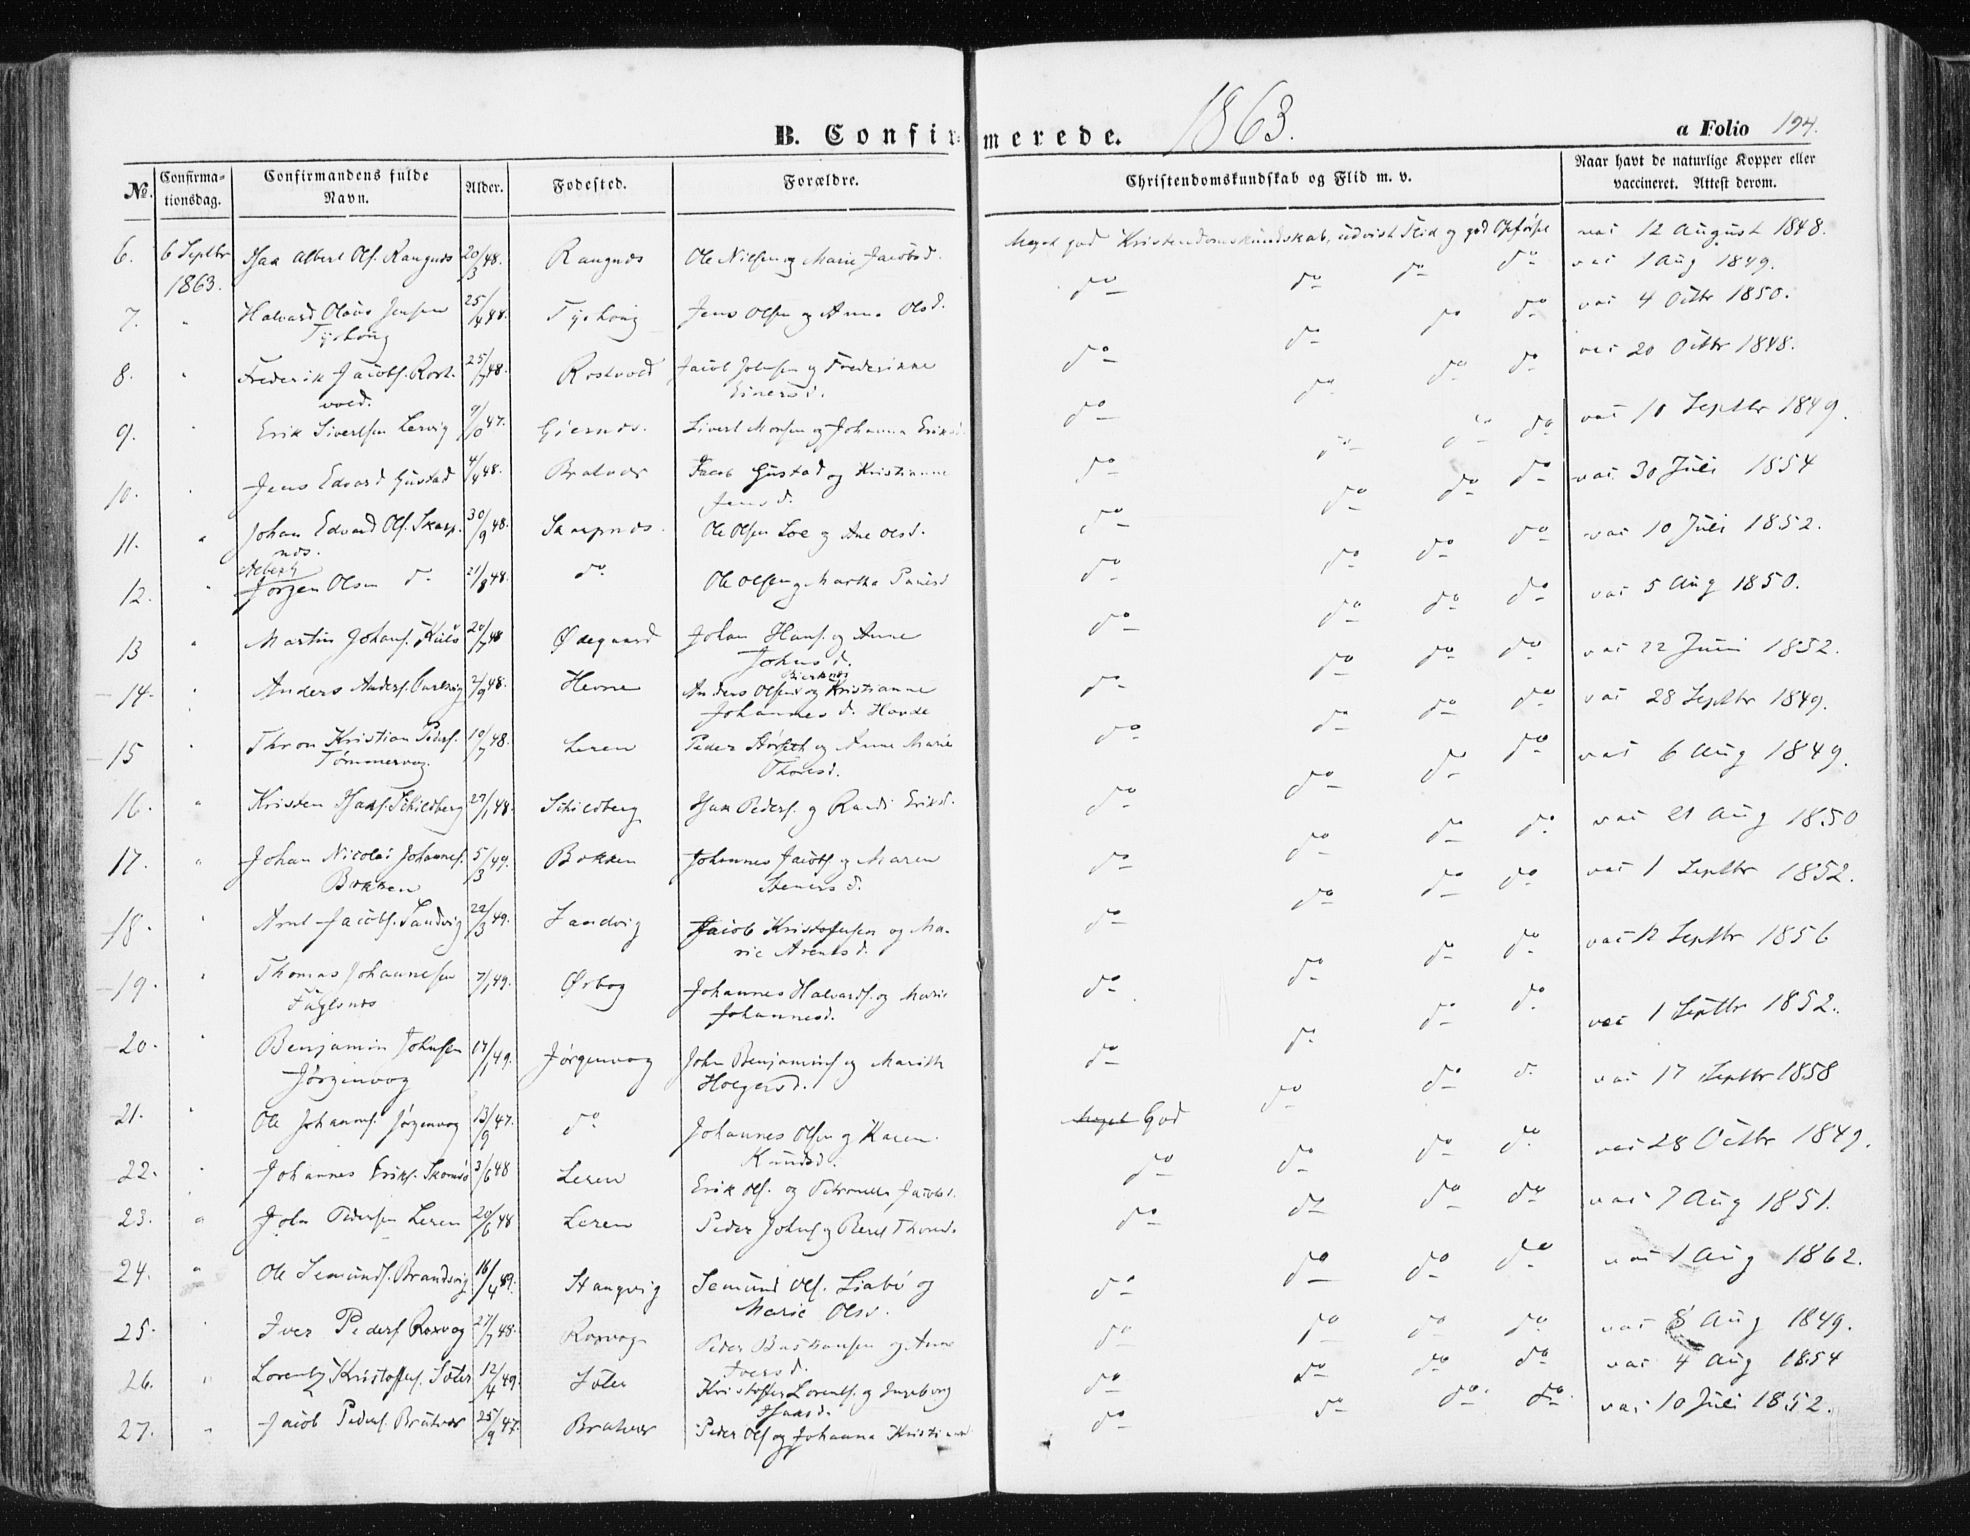 B. Confirmerede. 1863. a Folio 194.
No. Confirmationsdag. Confirmandens fulde Navn. Alder. Fødested. Forældre. Christendomskundskab og Flid m. v. Naar havt de naturlige Kopper eller vaccineret. Attest derom.
6. 6 Septbr 1863. Isak Albert Ols. Rangnæs 20/3 48. Rangnæs Ole Nilsen og Marie Jacobsd. Meget god Kristendomskundskab, udvist Flid og god Opførsel vac 12 August 1848.
7. " Halvard Olaus Jensen Tyshoug 25/4 48. Tyshoug Jens Olsen og Anne Olsd. do do do do vac 1 Aug 1849.
8. " Frederik Jacobs. Rostvold. 25/7 48. Rostvold Jacob Johnsen og Frederikke Einersd. do do do do vac 4 Octbr 1850.
9. " Erik Sivertsen Lervig 9/10 47. Giernæs. Sivert Monsen og Johanna Eriksd. do do do do vac 20 Octbr 1848.
10. " Jens Edvard Gustad 4/4 48. Bratvær Jacob Gustad og Kristianne Jensd. do do do do vac 10 Septbr 1849.
11. " Johan Edvard Ols. Skarpnæs. 30/9 48. Skarpnæs. Ole Olsen Loe og Ane Olsd. do do do do vac 30 Juli 1854
12. " Albert Jørgen Olsen do 21/8 48. do Ole Olsen og Martha Paulsd do do do do vac 10 Juli 1852.
13 " Martin Johans. Kulø 20/7 48 Ødegaard Johan Hans. og Anne Johnsd. do do do do vac 5 Aug 1850.
14. " Anders Anders. 2/9 48. Hevne Anders Olsen Bierknæs og Kristianne Johannesd. Hovde do do do do vac 22 Juni 1852.
15 " Thron Kristian Peders. Tømmervog. 10/7 48. Leren Peder Aørseth og Anne Marie Thoresd. do do do do vac 28 Septbr 1849.
16. " Kristen Isaks. Schildberg 27/1 48. Schildberg Isak Peders. og Randi Eriksd. do do do do vac 6 Aug 1849.
17. " Johan Nicolai Johannes. Bakken 5/3 49. Bakken Johannes Jacobs. og Maren Stenersd. do do do do vac 21 Aug 1850
18. " Arnt Jacobs. Sandvig 22/3 49. Sandvig Jacob Kristofersen og Marie Arentsd. do do do do vac 1 Septbr 1852.
19. " Thomas Johannesen Fuglsnæs 7/1 49. Ørbog Johannes Halvards. og Marie Johannesd. do do do do vac 12 Septbr 1856
20. " Benjamin Johnsen Jørgenvog 17/1 49. Jørgenvog John Benjamins. og Marith Holgersd. do do do do vac 1 Septbr 1852.
21. " Ole Johannes. Jørgenvog 13/9 47. do Johannes Olsen og Karen Knudsd. Meget God do do do vac 17 Septbr 1858
22. " Johannes Eriks. Skomsø 3/6 48 Leren Erik Ols. og Petronelle Jacobsd. do do do do vac 28 Octbr 1849.
23. " John Pedersen Leren 20/6 48 Leren Peder Johns. og Beret Thomsd. do do do do vac 7 Aug 1851.
24. " Ole Semunds. Brandsvig 16/4 49. Stangvig Semund Ols. Liabø og Marie Olsd. do do do do vac 1 Aug 1862.
25. " Iver Peders. Roxvog 27/7 48. Roxvog Peder Bastiansen og Anne Iversd. do do do do vac 8 Aug 1849.
26. " Lorentz Kristoffers. Sæter 12/4 49. Sæter Kristoffer Lorents. og Ingeborg Isaksd. do do do do vac 4 Aug 1854
27. " Jacob Peders. Bratvær 25/9 47. Bratvær Peder Ols. og Johanna Kristiansd do do do do vac 10 Juli 1852.